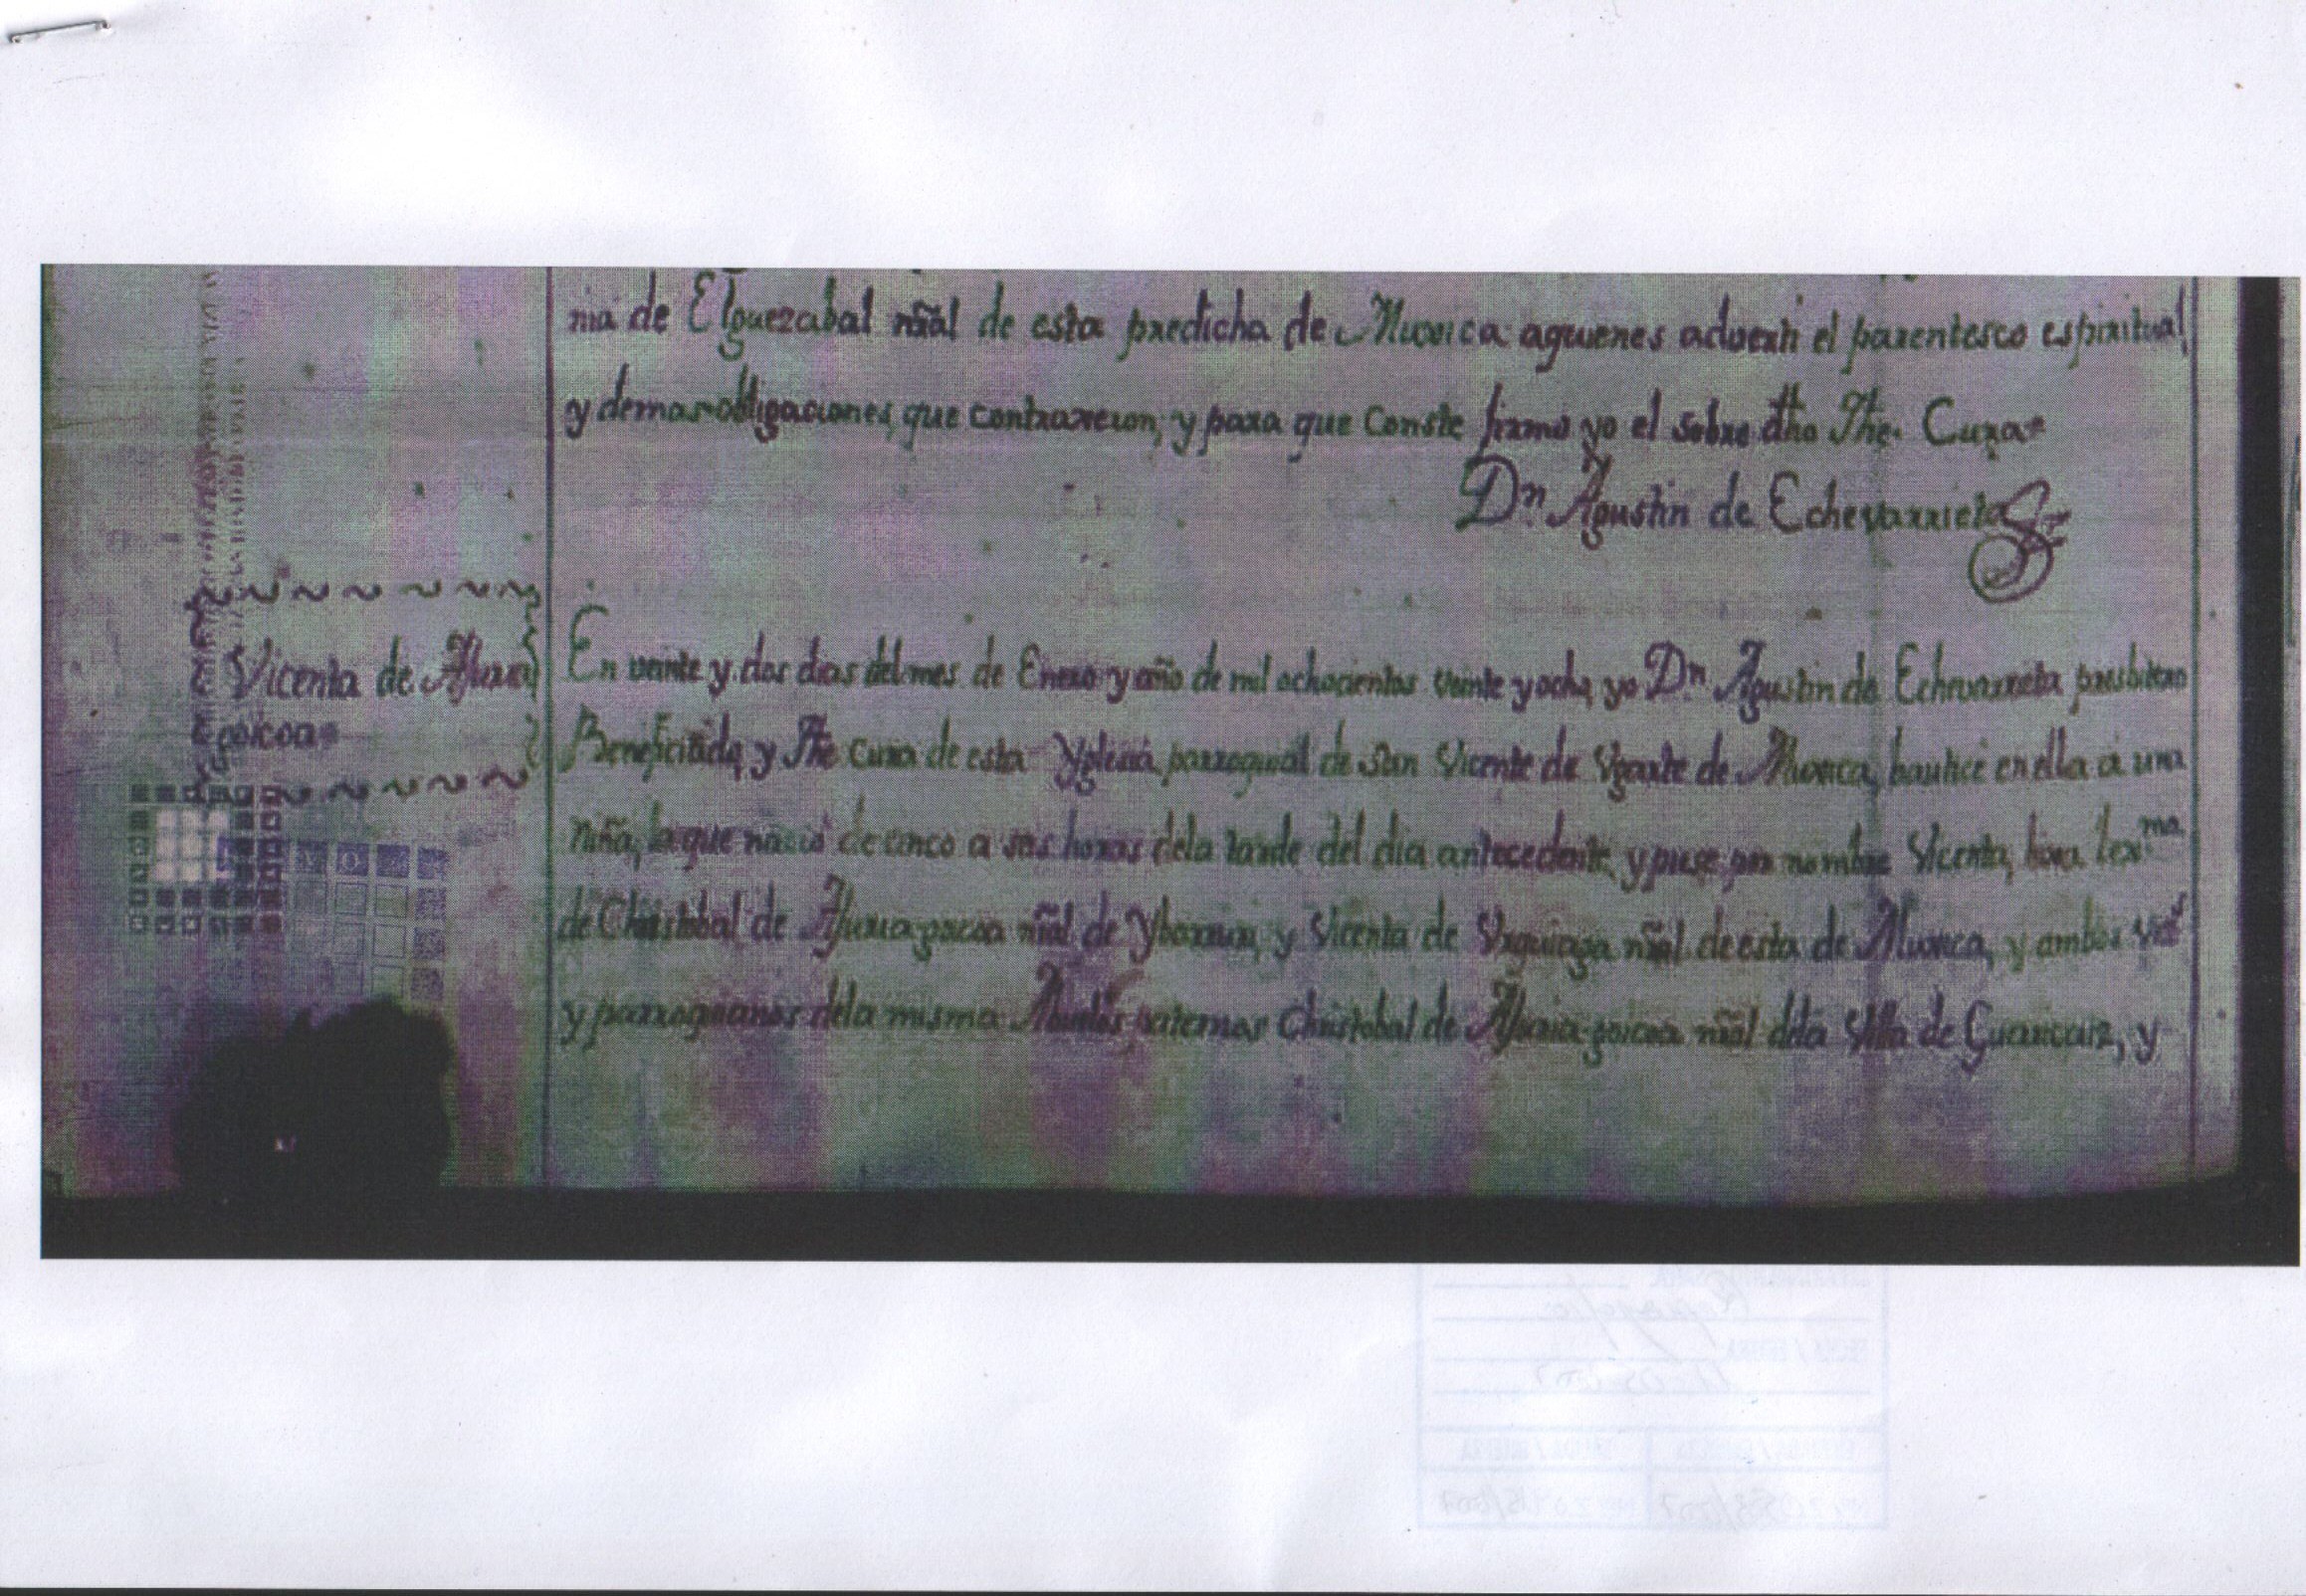 nia de Elguezabal nãl de esta predicha de Muxica aquienes adverti el parentesco espiritual,
y demas obligaciones, que contraxeron, y para que Conste firmo yo el sobre dho The. Cura=
Dn. Agustin de Echevarrieta
Vicenta de
goicoa=
En veinte y dos dias del mes de Enero y año de mil ochocientos veinte y ocho, yo Dn. Agustin de Echevarrieta presbitero
Beneficiado, y The Cura de esta Yglesia parroquial de San Vicente de Ugarte de Muxica, bautice en ella a una
niña, la que nacio de cinco a seis horas dela tarde del dia antecedente, y puse por nombre Vicenta, hixa lexma.
de Christobal de nãl de y Vicenta de Urquiaga nãl de esta de Muxica, y ambos
y parroquianos dela misma: Abuelos paternos Christobal de nãl dela Villa de Guernicaiz, y